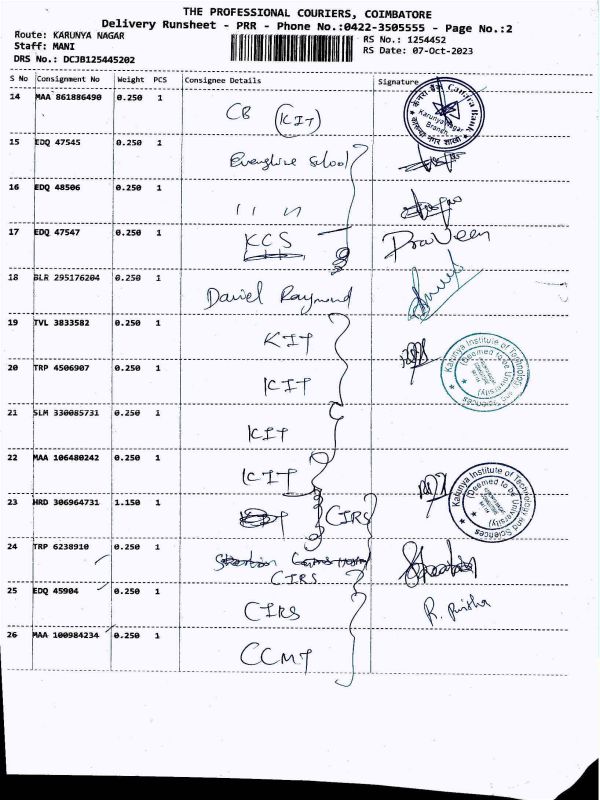 THE PROFESSIONAL COURIERS, COIMBATORE
Delivery Runsheet - PRR - Phone No.:0422-3505555 - Page No.:2
Route: KARUNYA NAGAR
RS No.: 1254452
Staff: MANI
RS Date: 07-Oct-2023
DRS No.: DCJB125445202
S No Consignment No Weight PCS Consignee Details Signature
14 MAA 861886490 0.250 1 CB (KIT)
केनरा बैंक Canara Bank
Karunya Nagar
Branch
15 EDQ 47545 0.250 1 School
16 EDQ 48506 0.250 1 11 11
17 EDQ 47547 0.250 1 KCS Praveen
18 BLR 295176204 0.250 1 Daniel Raymond
19 TVL 3833582 0.250 1 KIT
20 TRP 4506907 0.250 1 KIT
Karunya Institute of Technology and Sciences
(Deemed to be University)
21 SLM 330085731 0.250 1 KIT
22 MAA 106480242 0.250 1 KIT
Karunya Institute of Technology and Sciences
(Deemed to be University)
23 HRD 306964731 1.150 1 CIRS
24 TRP 6238910 0.250 1
CIRS
25 EDQ 45904 0.250 1 CIRS
26 MAA 100984234 0.250 1 CCMT